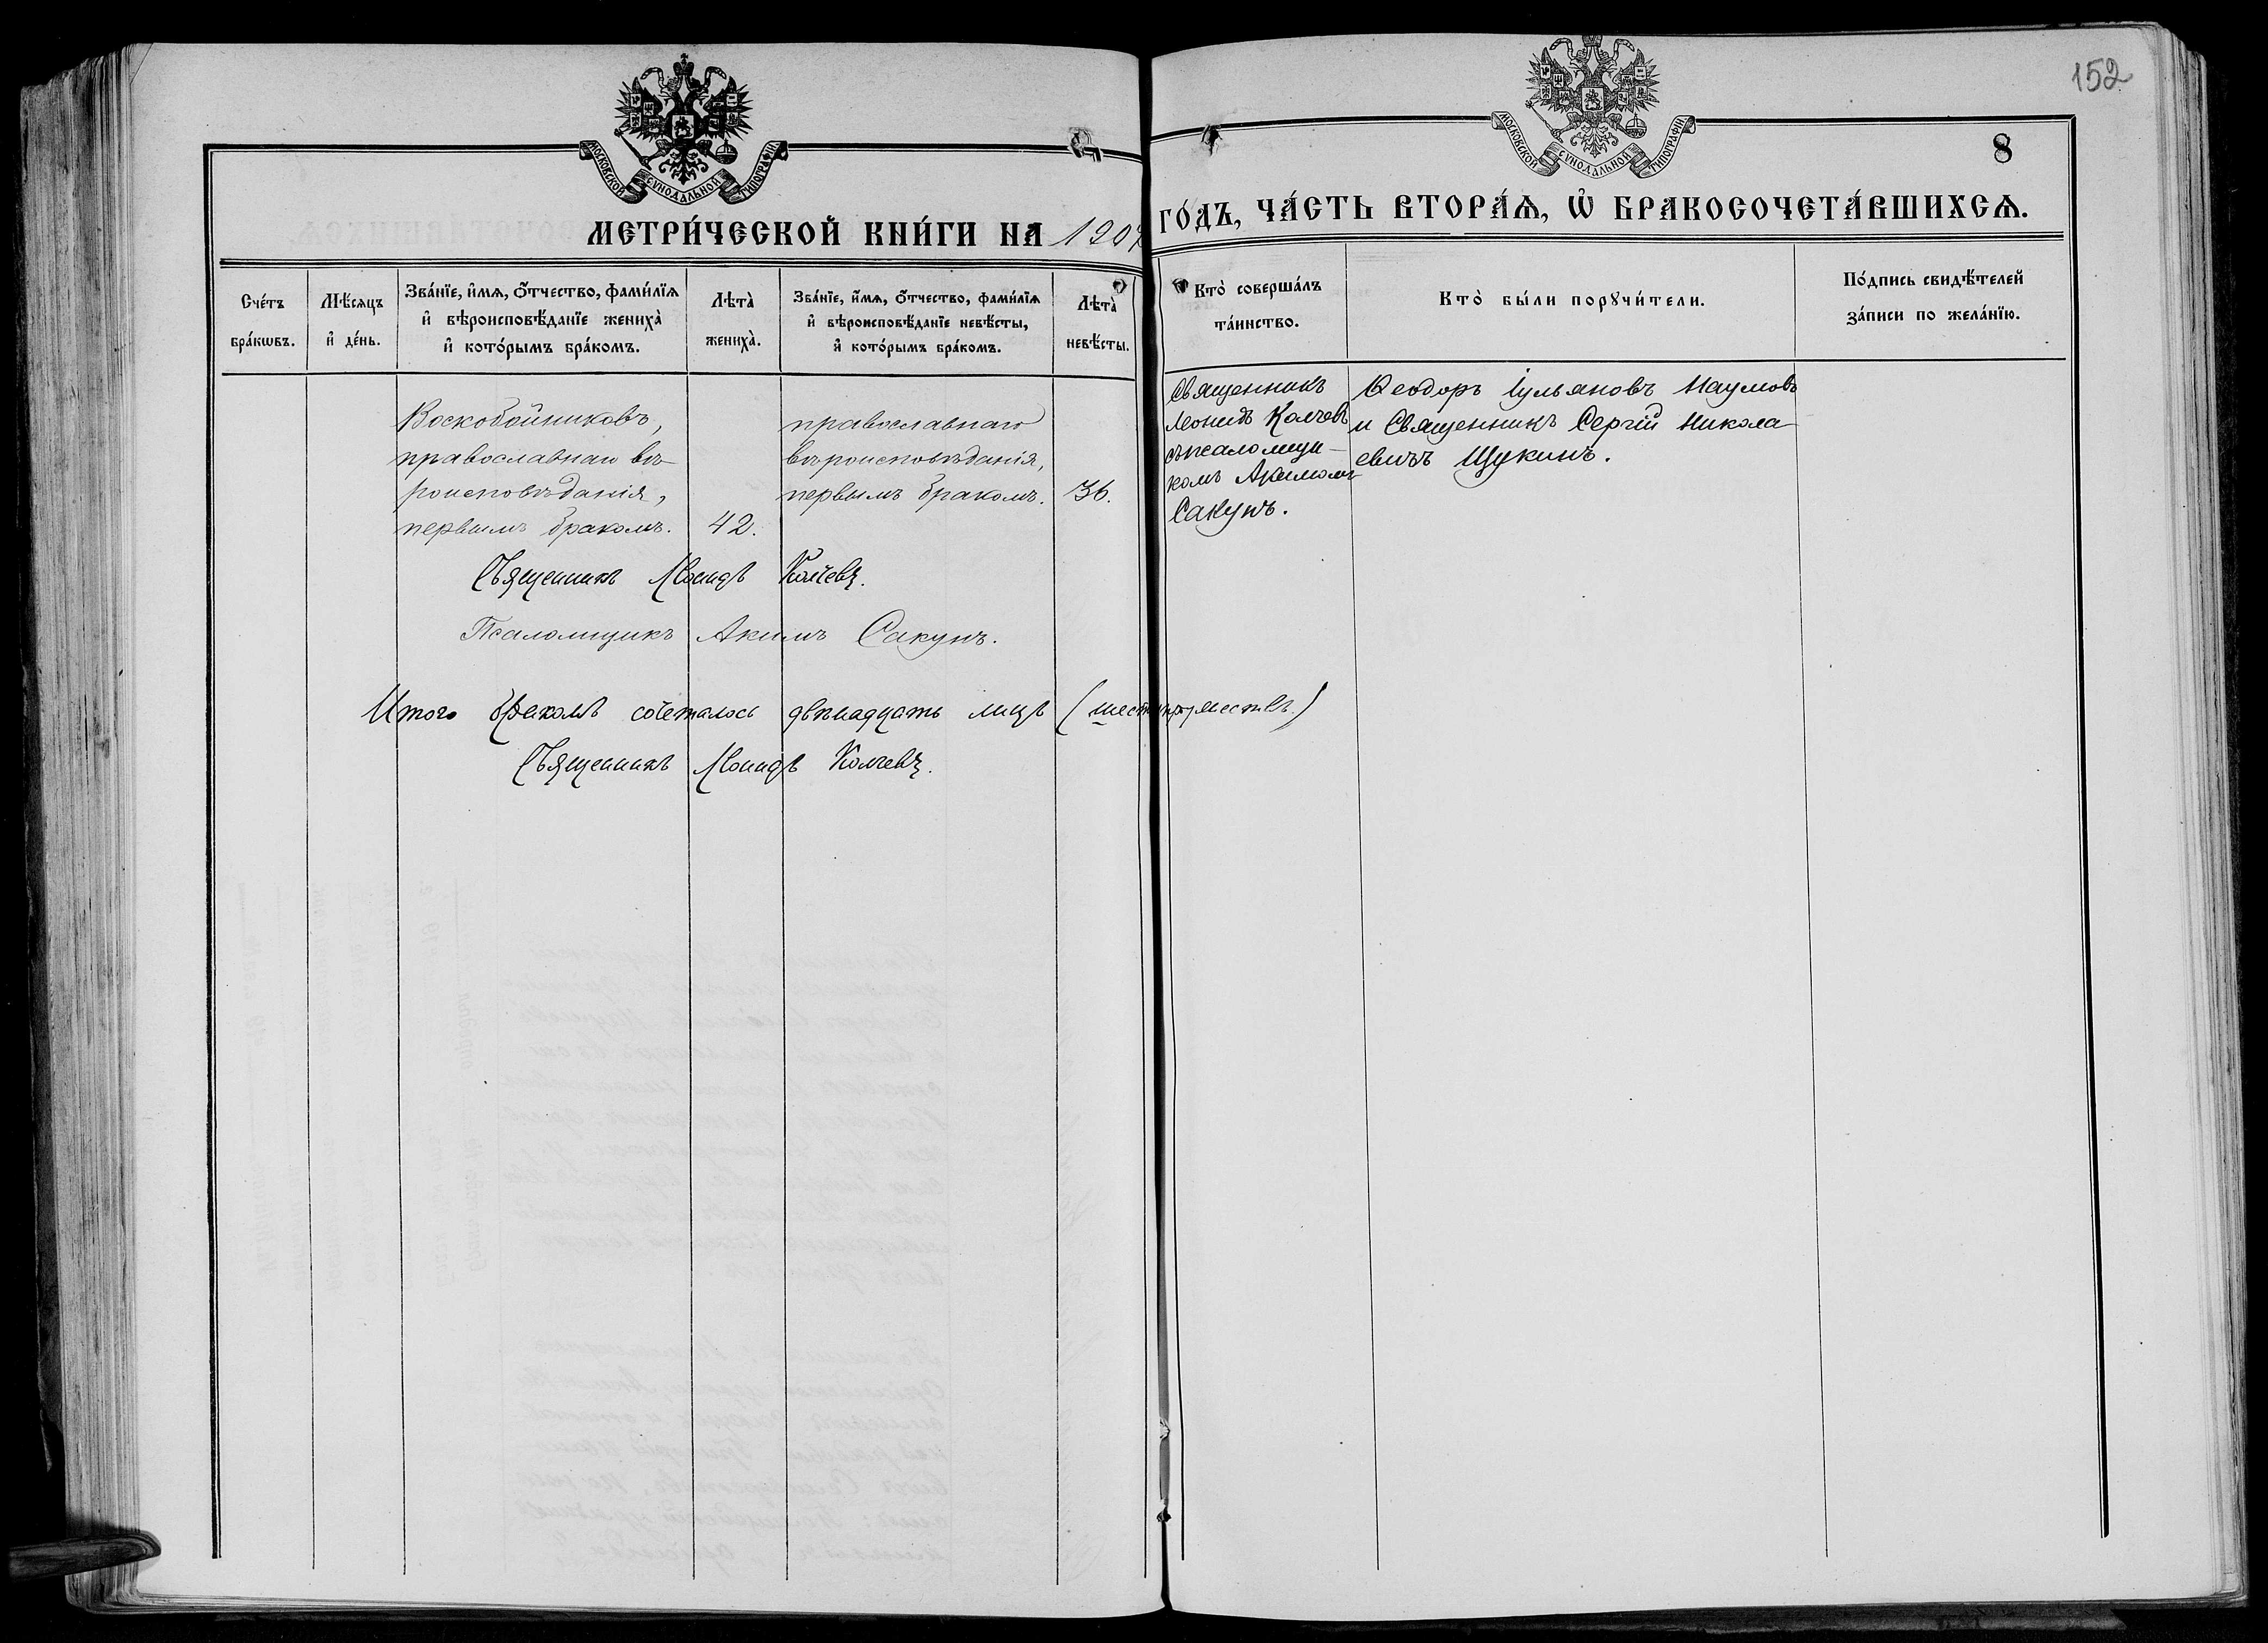 152
8
МОСКОВСКОЙ СѴНОДАЛЬНОЙ ТИПОГРАФІИ
МОСКОВСКОЙ СѴНОДАЛЬНОЙ ТИПОГРАФІИ
МЕТРИ́ЧЕСКОЙ КНИ́ГИ НА 1907
ГО́ДЪ, ЧА́СТЬ ВТОРА́Ѧ, Ѡ҆ БРАКОСОЧЕТА́ВШИХСѦ.
Сче́тъ бра́кѡвъ.
Мѣ́сяцъ и҆ де́нь.
Зва́нїе, и҆́мѧ, о҆́тчество, фами́лїѧ и҆ вѣроисповѣ́данїе жениха̀ и҆ кото́рымъ бра́комъ.
Лѣта̀ жениха̀.
Зва́нїе, и҆́мѧ, о҆́тчество, фами́лїѧ и҆ вѣроисповѣ́данїе невѣ́сты, и҆ кото́рымъ бра́комъ.
Лѣта̀ невѣ́сты.
Кто̀ соверша́лъ та́инство.
Кто̀ бы́ли порꙋчи́тели.
По́дпись свидѣ́телей за́писи по жела́нїю.
Воскобойниковъ,
православнаго вѣ-
роисповѣданія,
первымъ бракомъ.
42.
православнаго
вѣроисповѣданія,
первымъ бракомъ.
36.
Священникъ
Леонидъ Колчевъ
съ псаломщи-
комъ Акимомъ
Сакунъ.
Ѳеодоръ Іульяновъ Наумовъ
и Священникъ Сергій Никола-
евичъ Щукинъ.
Священникъ Леонидъ Колчевъ.
Псаломщикъ Акимъ Сакунъ.
Итого бракомъ сочеталось двѣнадцать лицъ (шесть супружествъ.)
Священникъ Леонидъ Колчевъ.